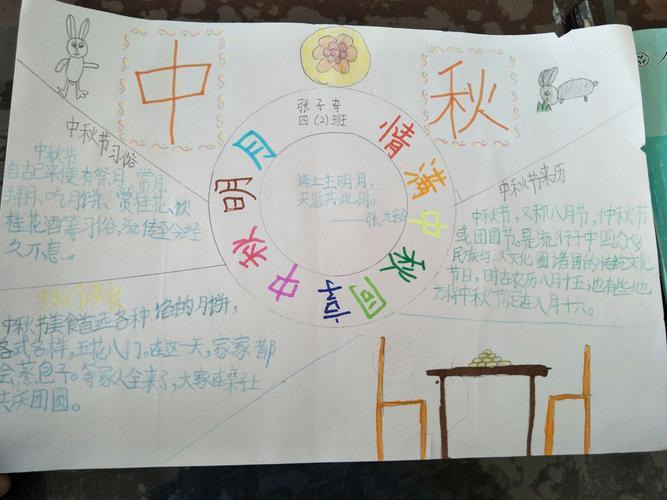 中
秋
张子奇
四(2)班
情满中秋
同享中秋明月
海上生明月,
天涯共此时。
——张九龄
中秋节习俗
中秋节
自古已来便有祭月、赏月、
拜月、吃月饼、赏桂花、饮
桂花酒等习俗,流传至今经
久不息。
中秋节来历
中秋节,又称八月节,仲秋节
或团圆节。是流行于中国众多
民族与汉文化圈诸国的传统文化
节日,时在农历八月十五;也有些地
方将中秋节定在八月十六。
中秋节
中秋节美食首选各种馅的月饼,
各式各样,五花八门。在这一天,家家都
会蒸包子。等家人全来了,大家在桌子上
共庆团圆。